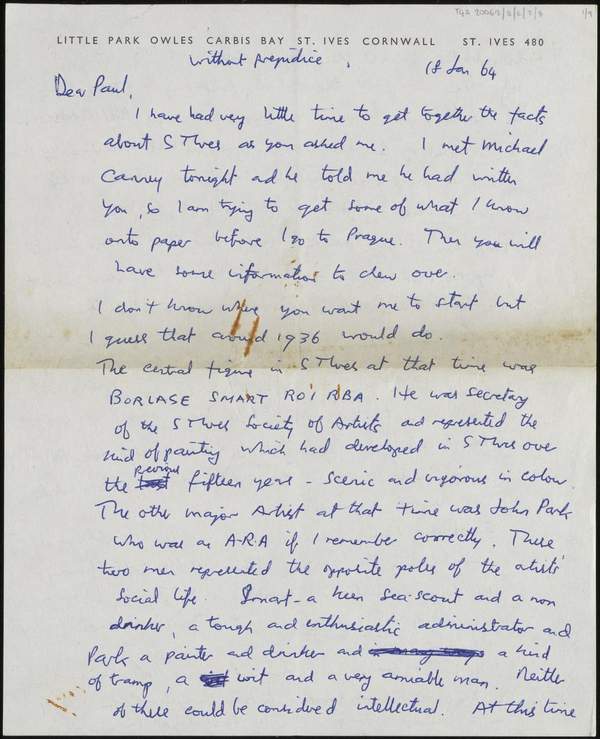 1/9
LITTLE PARK OWLES CARBIS BAY ST. IVES CORNWALL ST. IVES 480
without prejudice.
18 Jan 64
Dear Paul,
I have had very little time to get together the facts
about St Ives as you asked me. I met Michael
Canney tonight and he told me he had written
you, so I am trying to get some of what I know
onto paper before I go to Prague. Then you will
have some information to chew over.
I don't know where you want me to start but
I guess that around 1936 would do.
The central figure in St Ives at that time was
BORLASE SMART ROI RBA. He was secretary
of the St Ives Society of Artists and represented the
kind of painting which had developed in St Ives over
the previous fifteen years - scenic and vigorous in colour.
The other major Artist at that time was John Park
who was an A.R.A if I remember correctly. These
two men represented the opposite poles of the artists'
social life. Smart - a keen sea-scout and a non
drinker, a tough and enthusiastic administrator and
Park a painter and drinker and a kind
of tramp, a wit and a very amiable man. Neither
of these could be considered intellectual. At this time